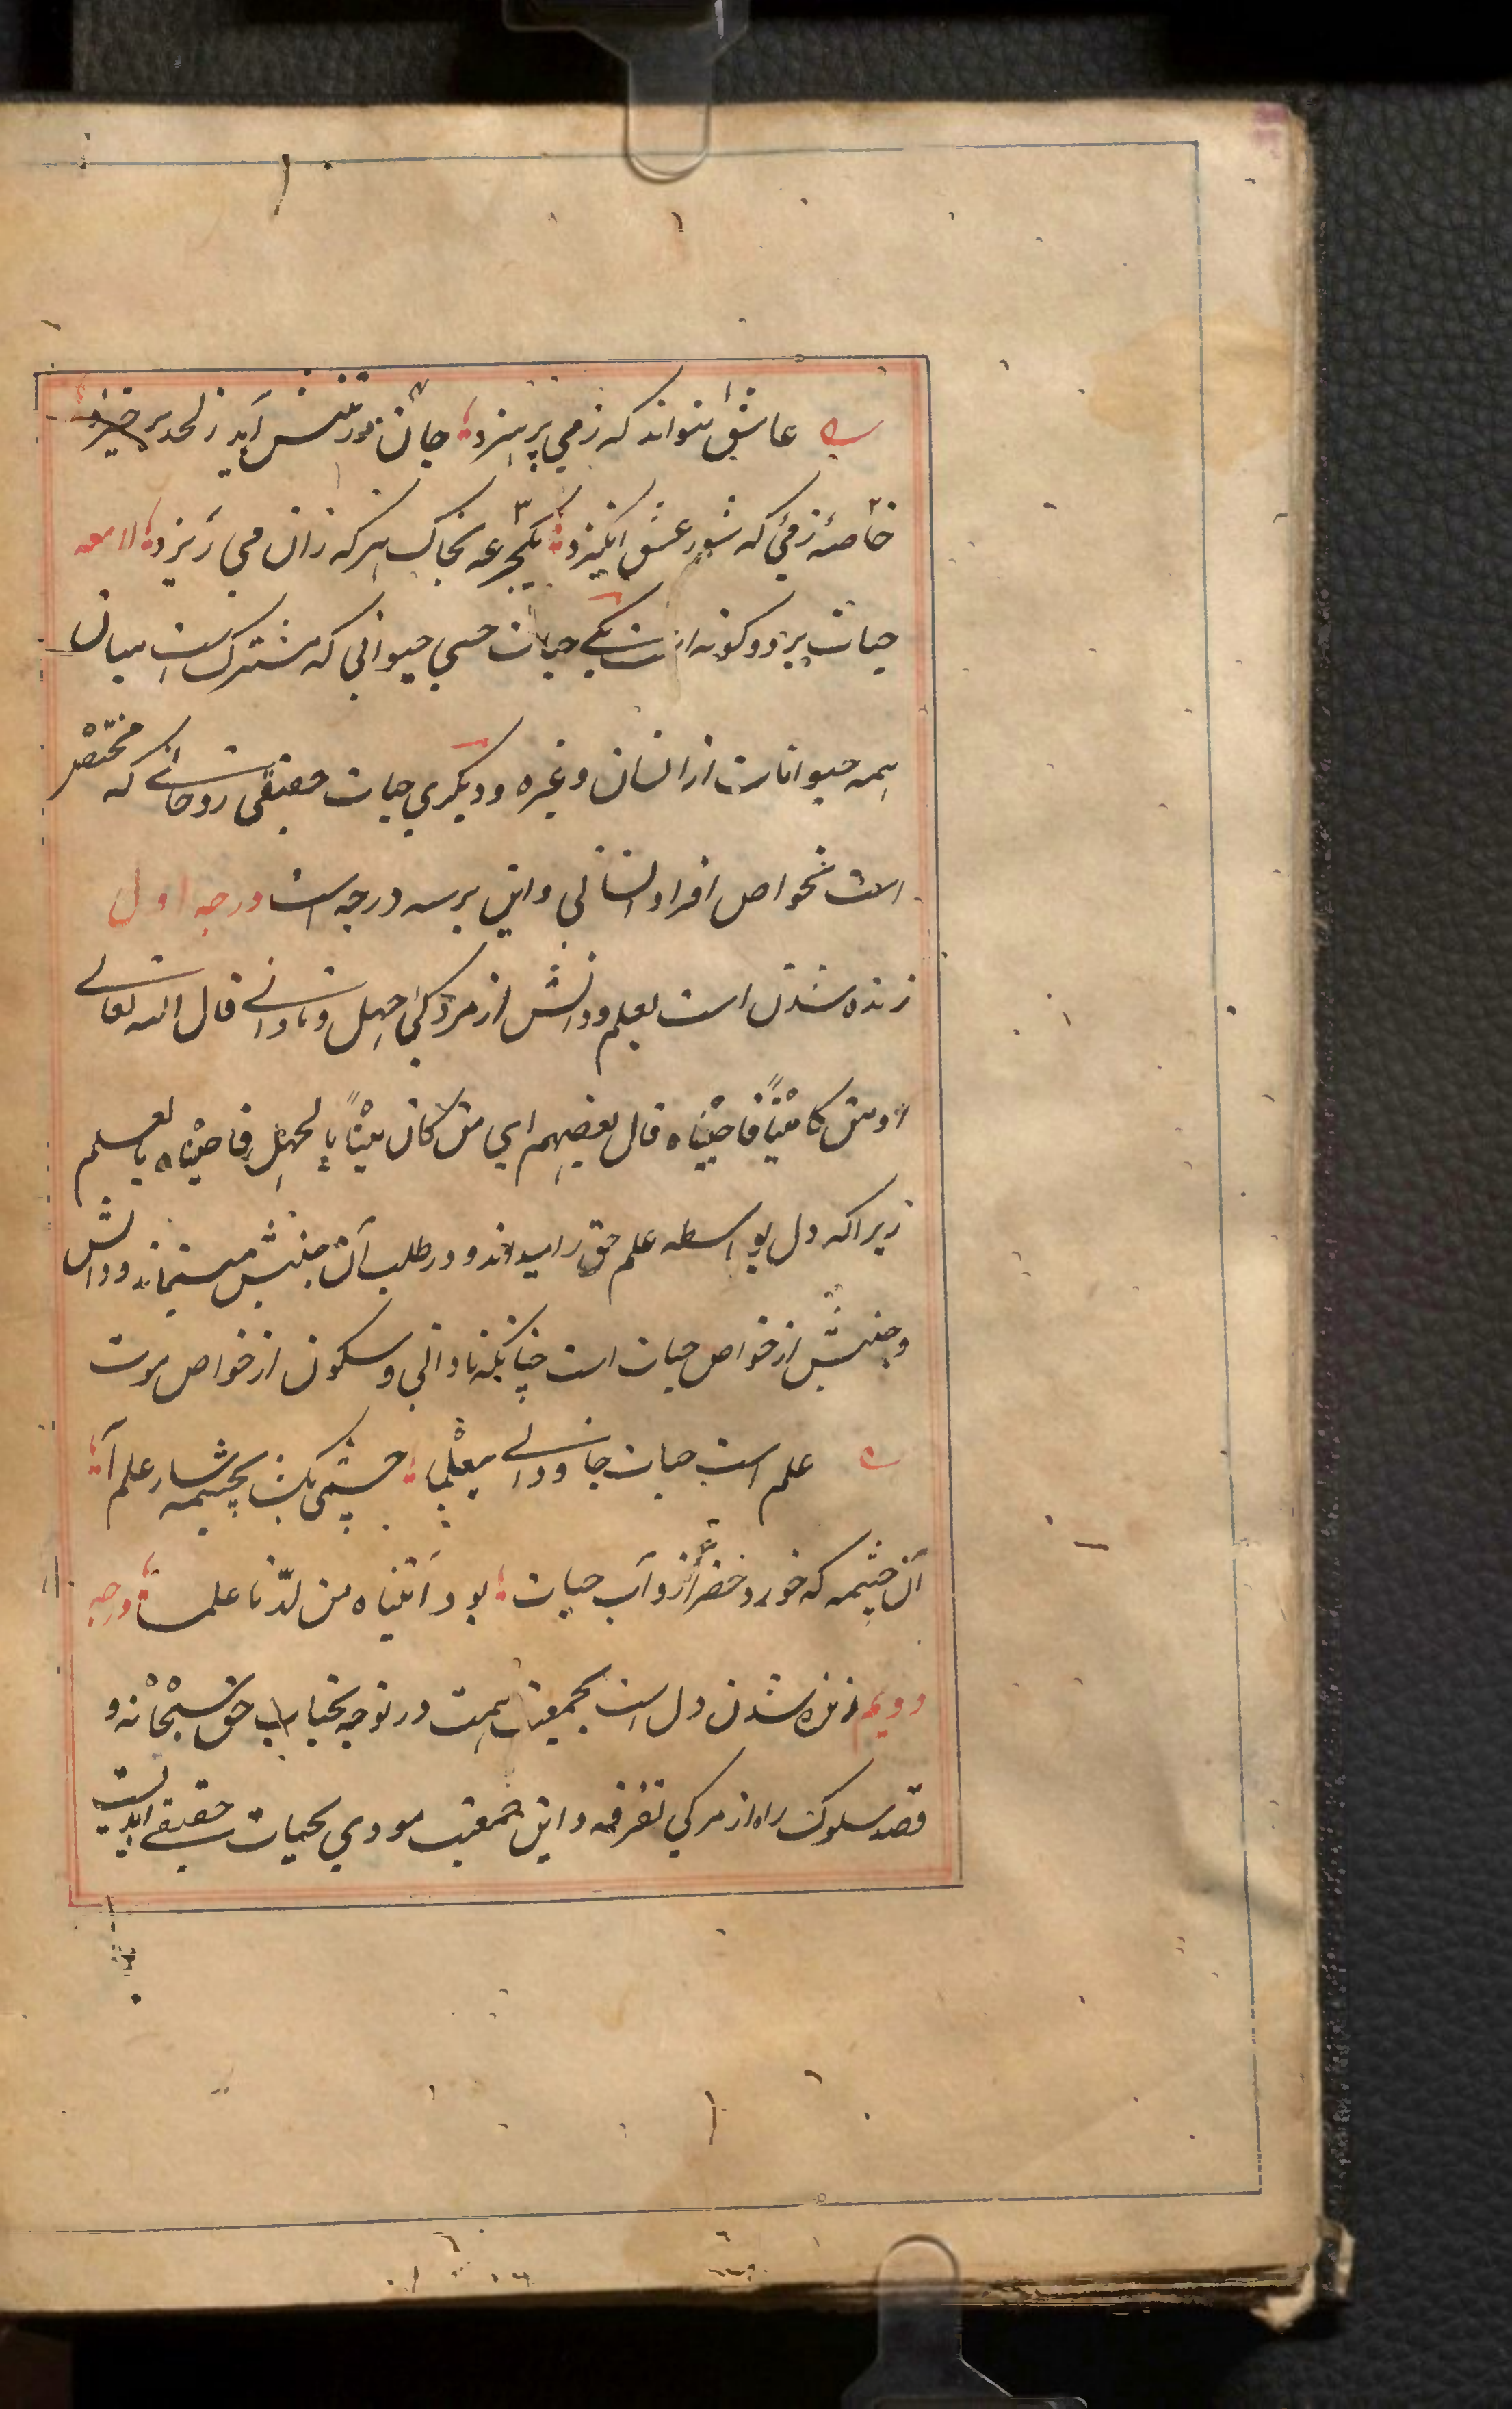 عاشق نتواند که ز می پرهیزد جان در تنش آید ز لحد برخیزد
خاصه ز میی که شور عشق انگیزد یکجرعه بخاک هر که زان می ریزد لامعه
حیات بر دو گونه است یکی حیات حسی حیوانی که مشترک است میان
همه حیوانات از انسان و غیره و دیگری حیات حقیقی روحانی که مختص
است بخواص افراد انسانی و این بر سه درجه است درجه اول
زنده شدن است بعلم و دانش از مردگی جهل و نادانی قال الله تعالی
او من کا میتا فاحییناه قال بعضهم ای من کان میتا بالجهل فاحییناه بالعلم
زیرا که دل بواسطه علم حق را میداند و در طلب آن جنبش میتماند و دانش
و جنبش از خواص حیات است چنانکه نادانی و سکون از خواص موت
علم است حیات جاودانی بیقین چشمی بکشا بچشمه سار علم آ
آن چشمه که خورد خضر ازو آب حیات بود آتیناه من لدنا علما درجه
دویم زنده شدن دل است بجمعیت همت در توجه بجناب حق سبحانه و
قصد سلوک راه از مرکی تفرقه و این جمعیت مودی بحیات حقیقی ابدیست